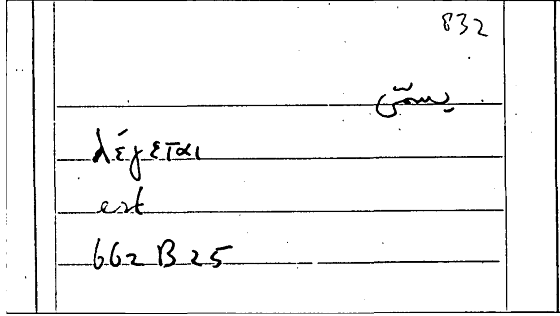 832
λέγεται
est
662 B 25